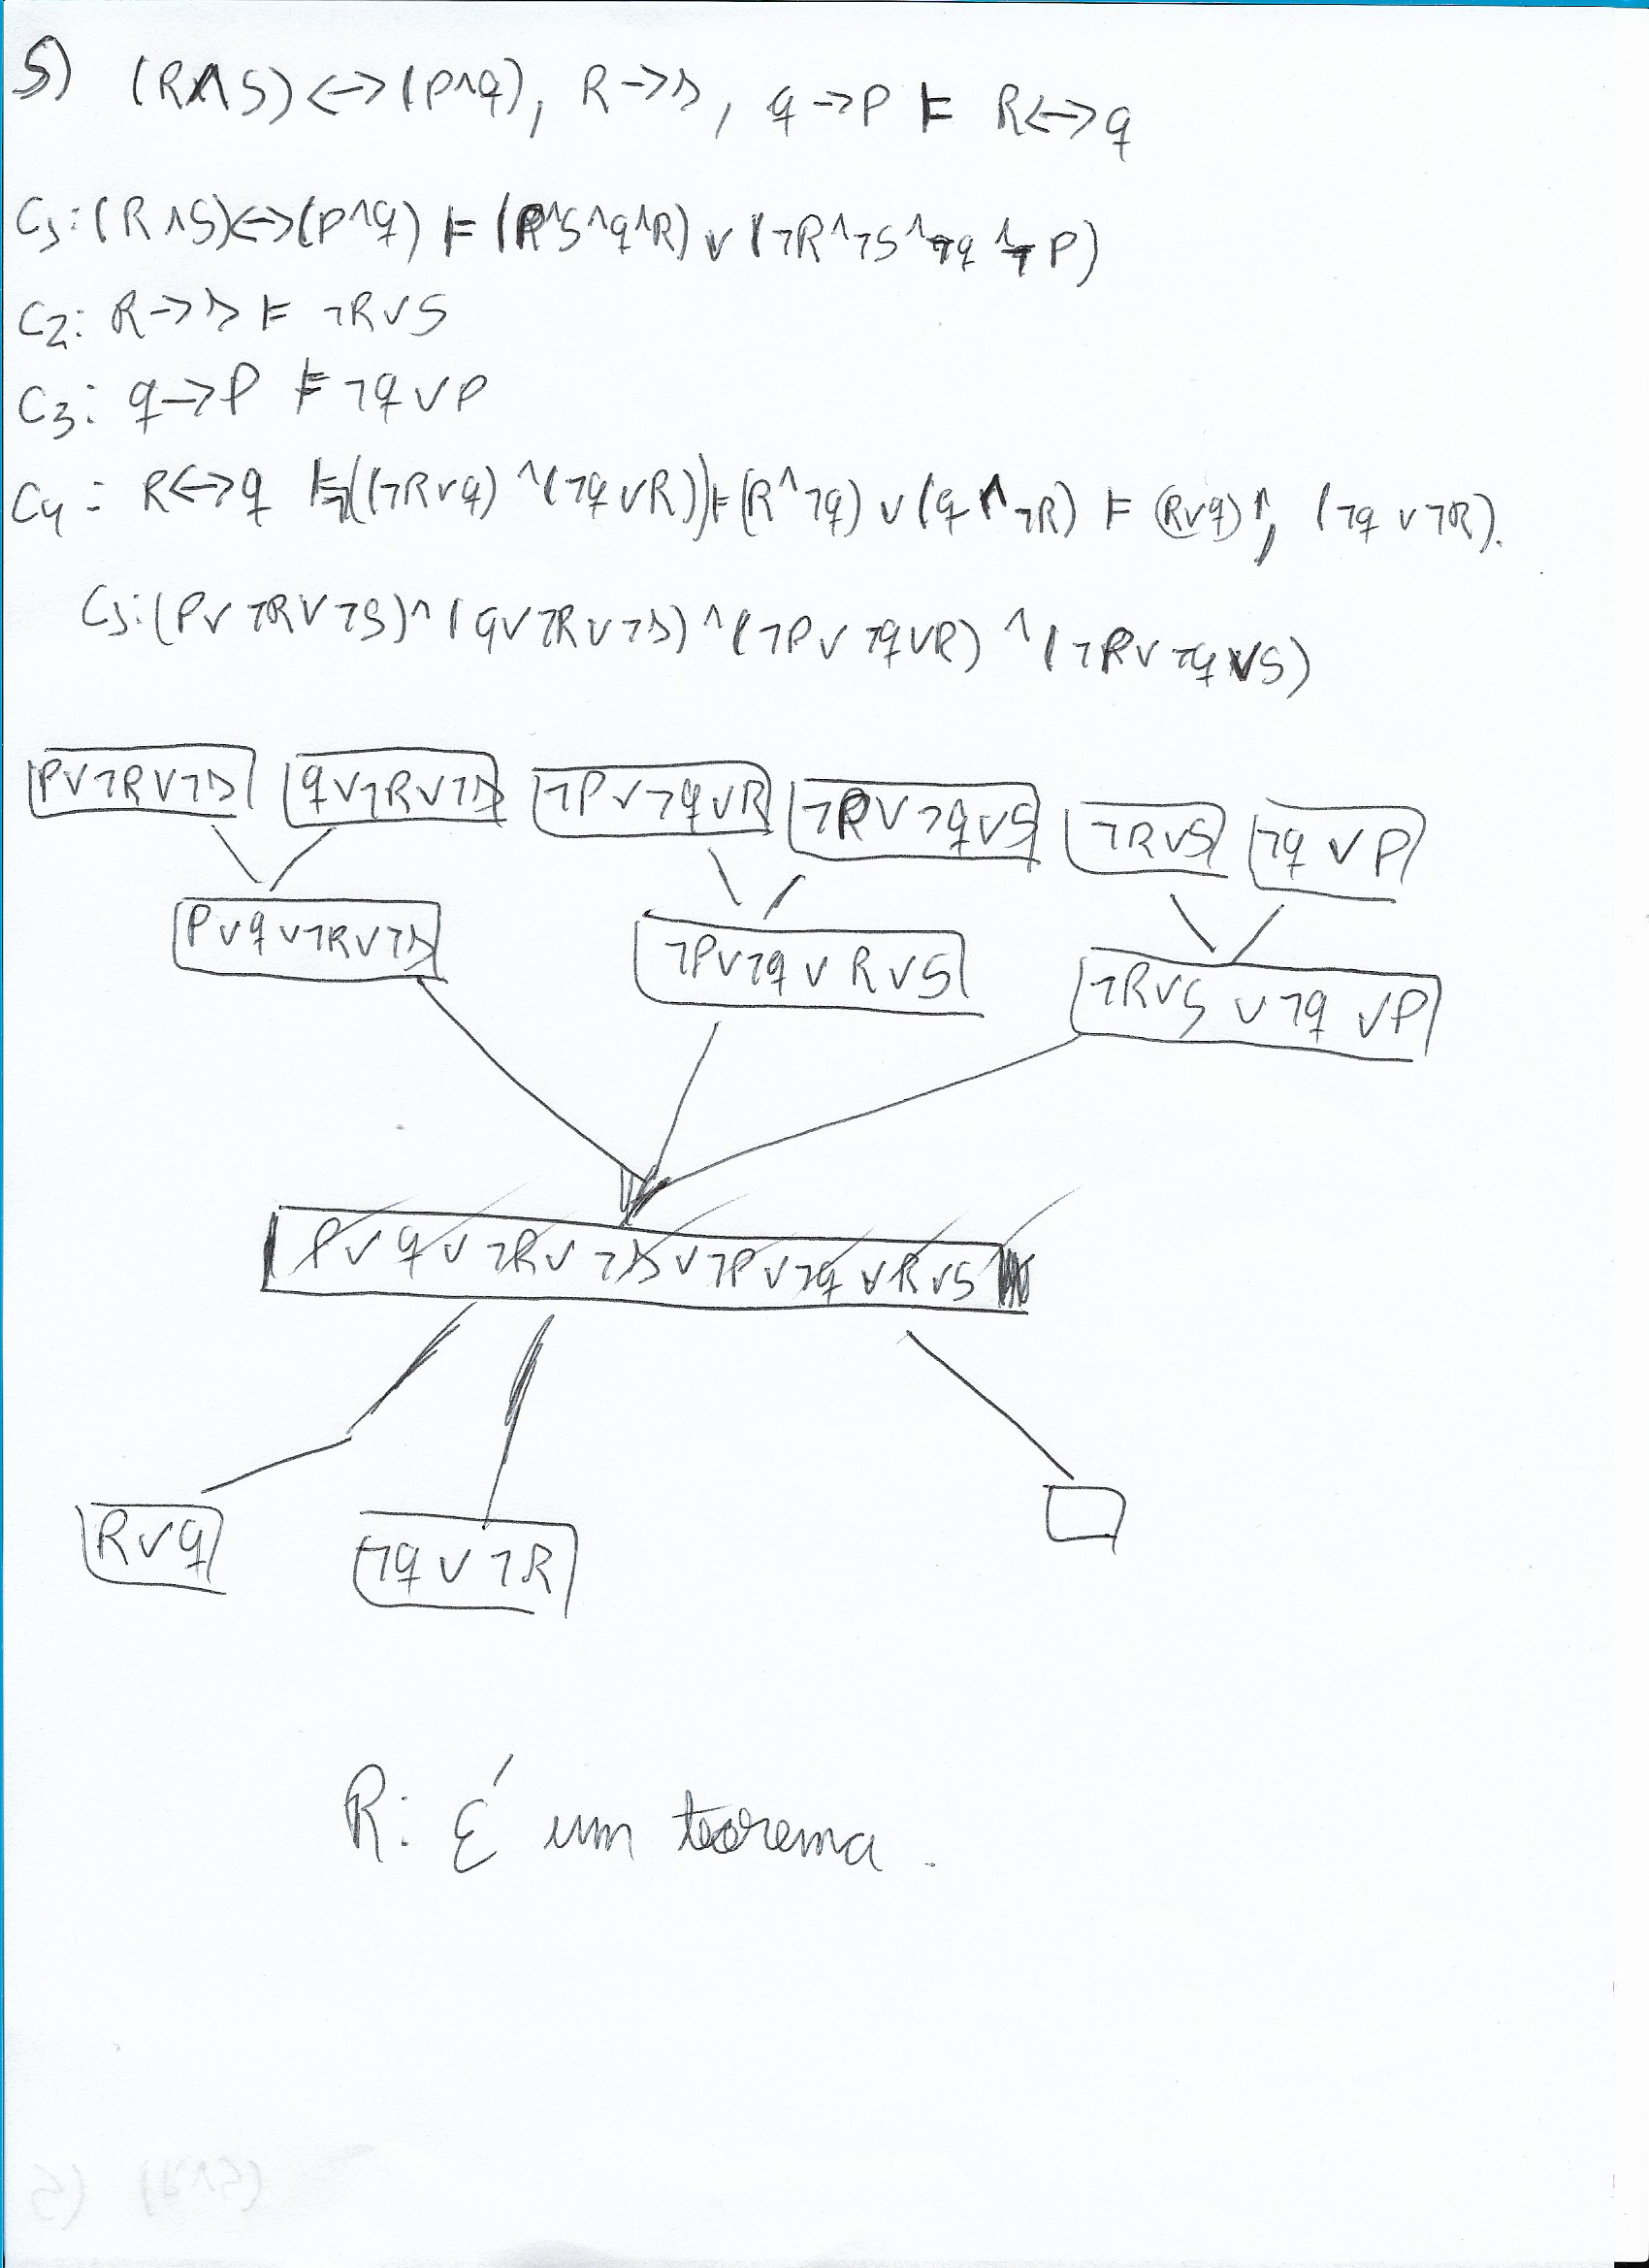 5) (R∧S) <-> (P∧q), R->s, q->P ⊨ R<->q
C1: (R∧S)<->(P∧q) ⊨ (P∧S∧q∧R) ∨ (¬R∧¬S∧¬q∧¬P)
C2: R->s ⊨ ¬R∨S
C3: q->P ⊨ ¬q∨P
C4: R<->q ⊨ ¬((¬R∨q)∧(¬q∨R)) ⊨ (R∧¬q)∨(q∧¬R) ⊨ (R∨q)∧, (¬q∨¬R).
C1: (P∨¬R∨¬S)∧(q∨¬R∨¬s)∧(¬P∨¬q∨R)∧(¬P∨¬q∨S)
P∨¬R∨¬s q∨¬R∨¬s ¬P∨¬q∨R ¬P∨¬q∨S ¬R∨S ¬q∨P
P∨q∨¬R∨¬s ¬P∨¬q∨R∨S ¬R∨S∨¬q∨P
P∨q∨¬R∨¬s∨¬P∨¬q∨R∨S
R∨q ¬q∨¬R
R: É um teorema.